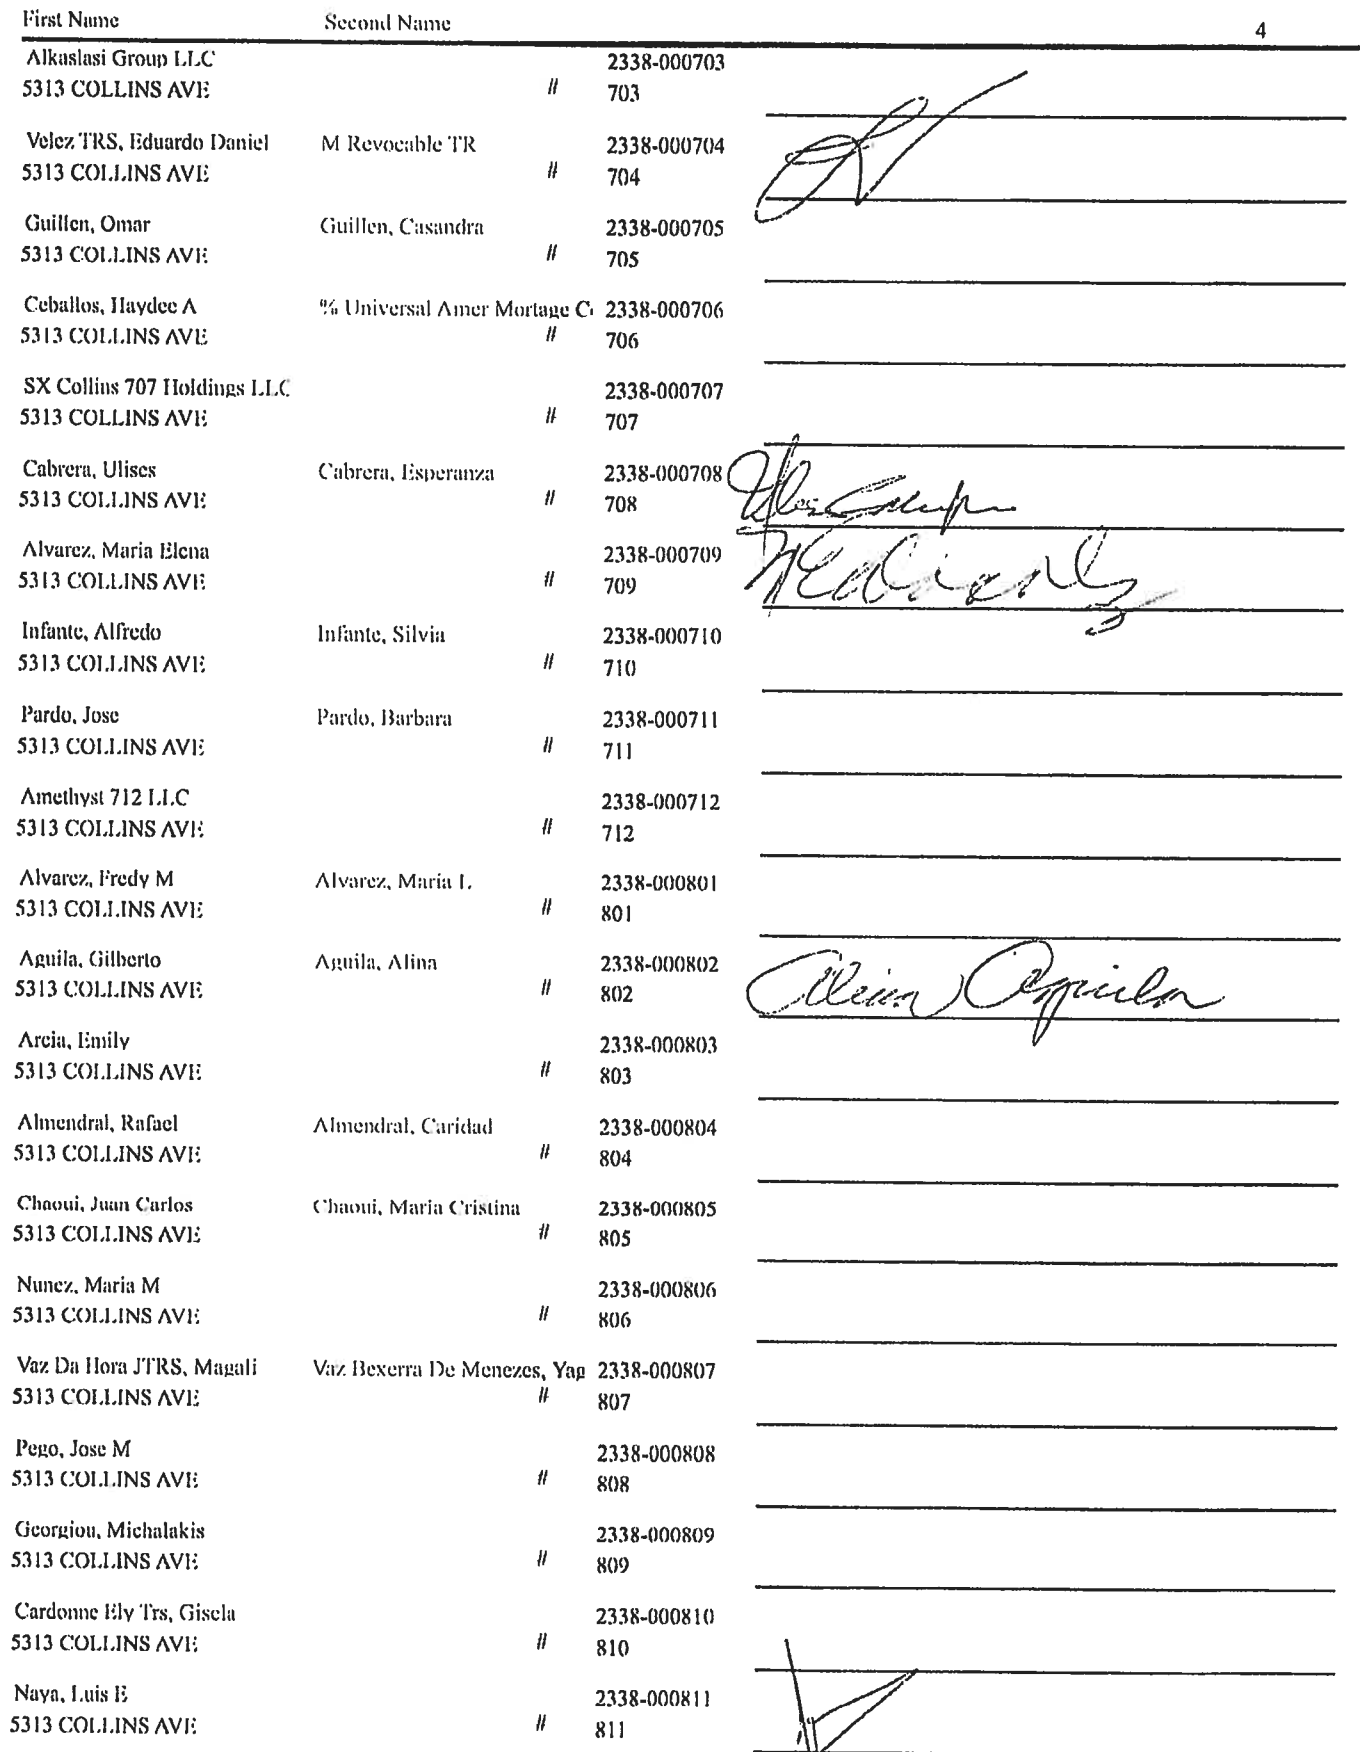 First Name Second Name 4
Alkaslasi Group LLC 2338-000703
5313 COLLINS AVE # 703
Velez TRS, Eduardo Daniel M Revocable TR 2338-000704
5313 COLLINS AVE # 704
Guillen, Omar Guillen, Casandra 2338-000705
5313 COLLINS AVE # 705
Ceballos, Haydee A % Universal Amer Mortage C 2338-000706
5313 COLLINS AVE # 706
SX Collins 707 Holdings LLC 2338-000707
5313 COLLINS AVE # 707
Cabrera, Ulises Cabrera, Esperanza 2338-000708
5313 COLLINS AVE # 708
Alvarez, Maria Elena 2338-000709
5313 COLLINS AVE # 709
Infante, Alfredo Infante, Silvia 2338-000710
5313 COLLINS AVE # 710
Pardo, Jose Pardo, Barbara 2338-000711
5313 COLLINS AVE # 711
Amethyst 712 LLC 2338-000712
5313 COLLINS AVE # 712
Alvarez, Fredy M Alvarez, Maria L 2338-000801
5313 COLLINS AVE # 801
Aguila, Gilberto Aguila, Alina 2338-000802
5313 COLLINS AVE # 802 Alina Aguila
Arcia, Emily 2338-000803
5313 COLLINS AVE # 803
Almendral, Rafael Almendral, Caridad 2338-000804
5313 COLLINS AVE # 804
Chaoui, Juan Carlos Chaoui, Maria Cristina 2338-000805
5313 COLLINS AVE # 805
Nunez, Maria M 2338-000806
5313 COLLINS AVE # 806
Vaz Da Hora JTRS, Magali Vaz Bexerra De Menezes, Yag 2338-000807
5313 COLLINS AVE # 807
Pego, Jose M 2338-000808
5313 COLLINS AVE # 808
Georgiou, Michalakis 2338-000809
5313 COLLINS AVE # 809
Cardonne Ely Trs, Gisela 2338-000810
5313 COLLINS AVE # 810
Naya, Luis E 2338-000811
5313 COLLINS AVE # 811